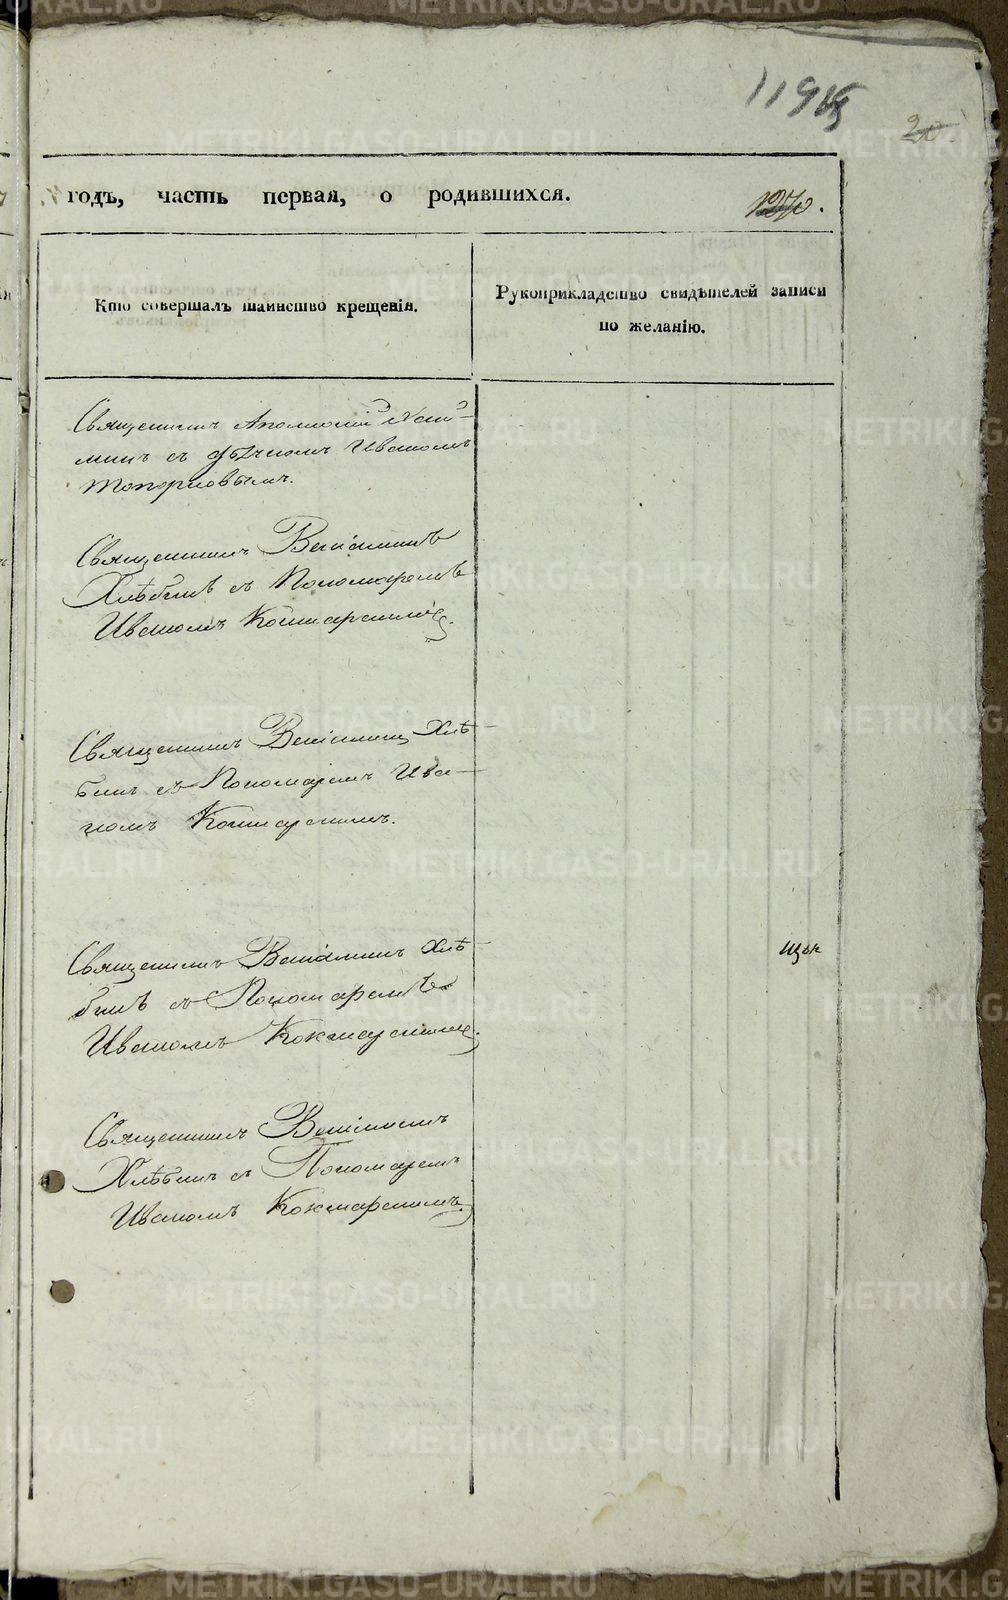 20
годъ, часть первая, о родившихся.
Кто совершалъ таинство крещенія.
Рукоприкладство свидѣтелей записи
по желанію.
Священникъ Аполлоній
съ дьячкомъ Иваномъ
Топорковымъ.
Священникъ Веніаминъ
Хлѣбинъ съ Пономаремъ
Иваномъ Кокшарскимъ.
Священникъ Веніаминъ Хлѣ-
бинъ съ Пономаремъ Ива-
номъ Кокшарскимъ.
Священникъ Веніаминъ Хлѣ-
бинъ съ Пономаремъ
Иваномъ Кокшарскимъ.
Священникъ Веніаминъ
Хлѣбинъ съ Пономаремъ
Иваномъ Кокшарскимъ.
METRIKI.GASO-URAL.RU